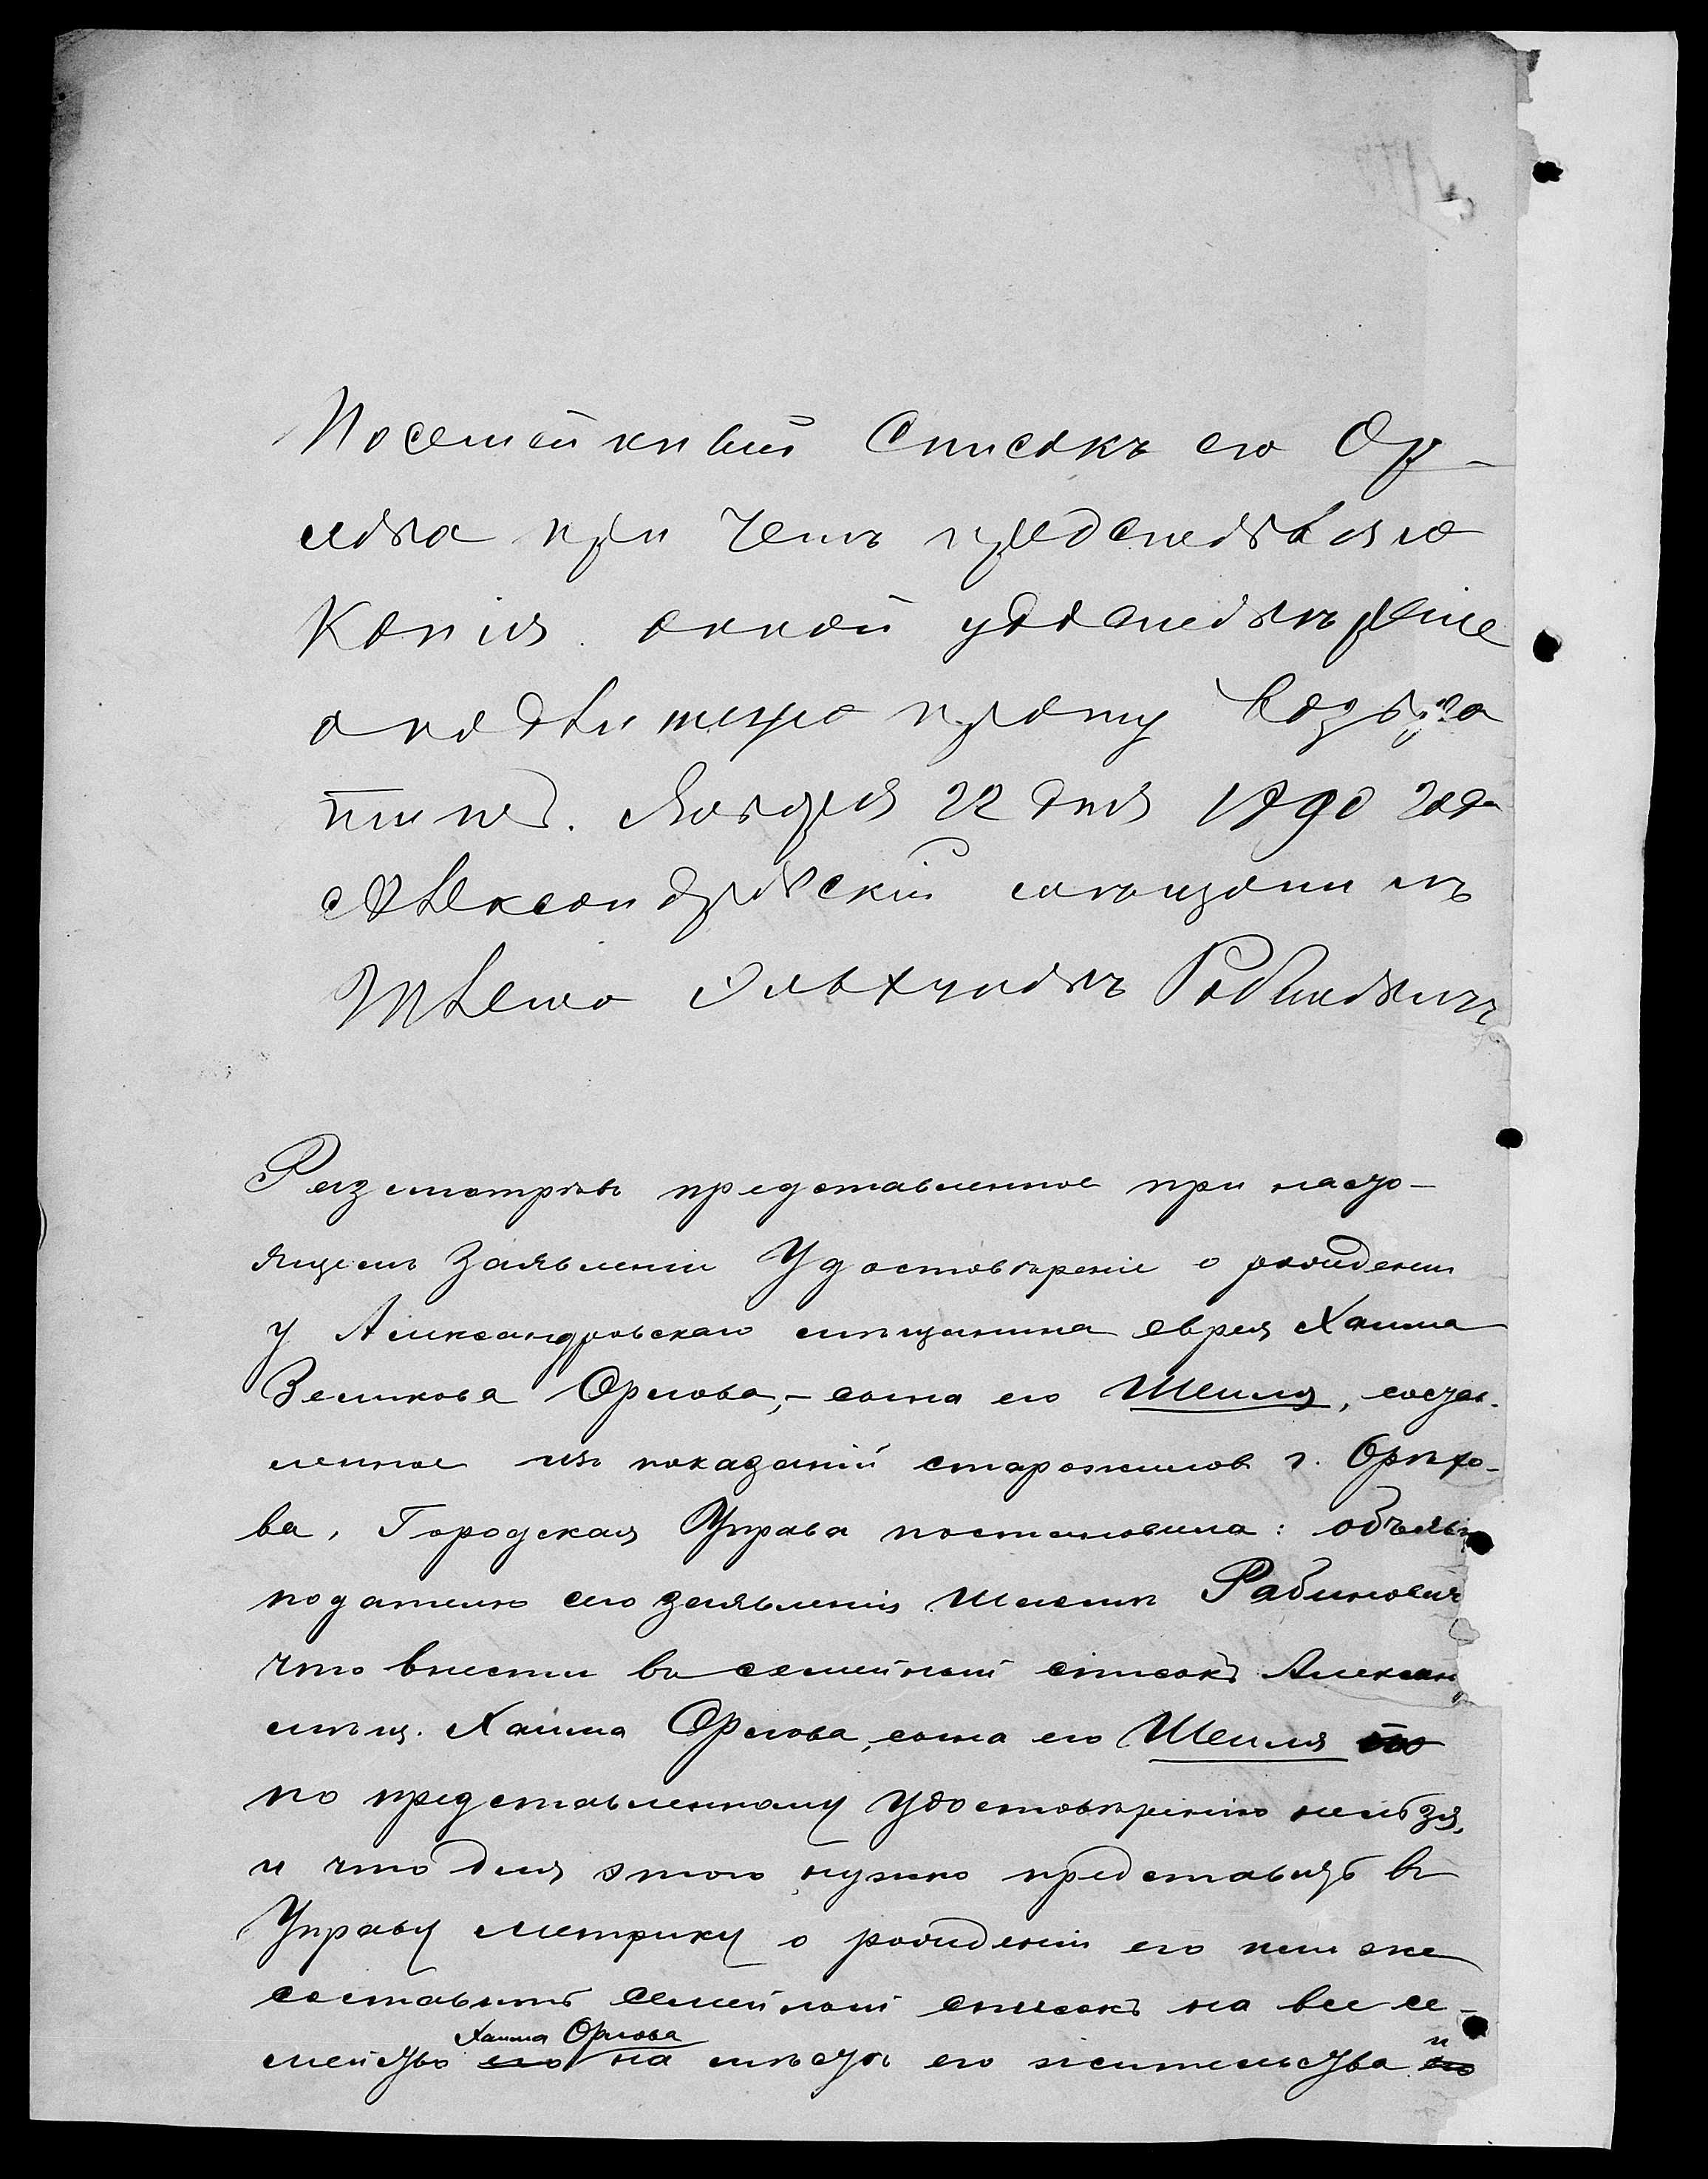 Посемейный Списокъ его Ор-
лова при чемъ предоставляю
Копия оной удостовѣрение
а подлинную прошу возвра
тить. Января 22 дня 1890 года
Александровскій мѣщанинъ
Шлема Эльхуновъ Рабиновичъ
Разсмотрѣвъ представленное при насто-
ящемъ заявленіи Удостовѣреніе о рожденіи
у Александровскаго мѣщанина еврея Хаима
Зеликова Орлова,- сына его Шеиля, состав-
ленное изъ показаній старожиловъ г. Орѣхо-
ва, Городская Управа постановила: объяви
подателю сего заявленія Шлемѣ Рабинович
что внести въ семейный списокъ Алексан
мѣщ. Хаима Орлова, сына его Шеиля
по представленному удостовѣренію нельзя,
и что для этого нужно представить въ
Управу метрику о рожденіи его или же
составить семейный списокъ на все се-
Хаима Орлова
мейство его на мѣстѣ его жительства и